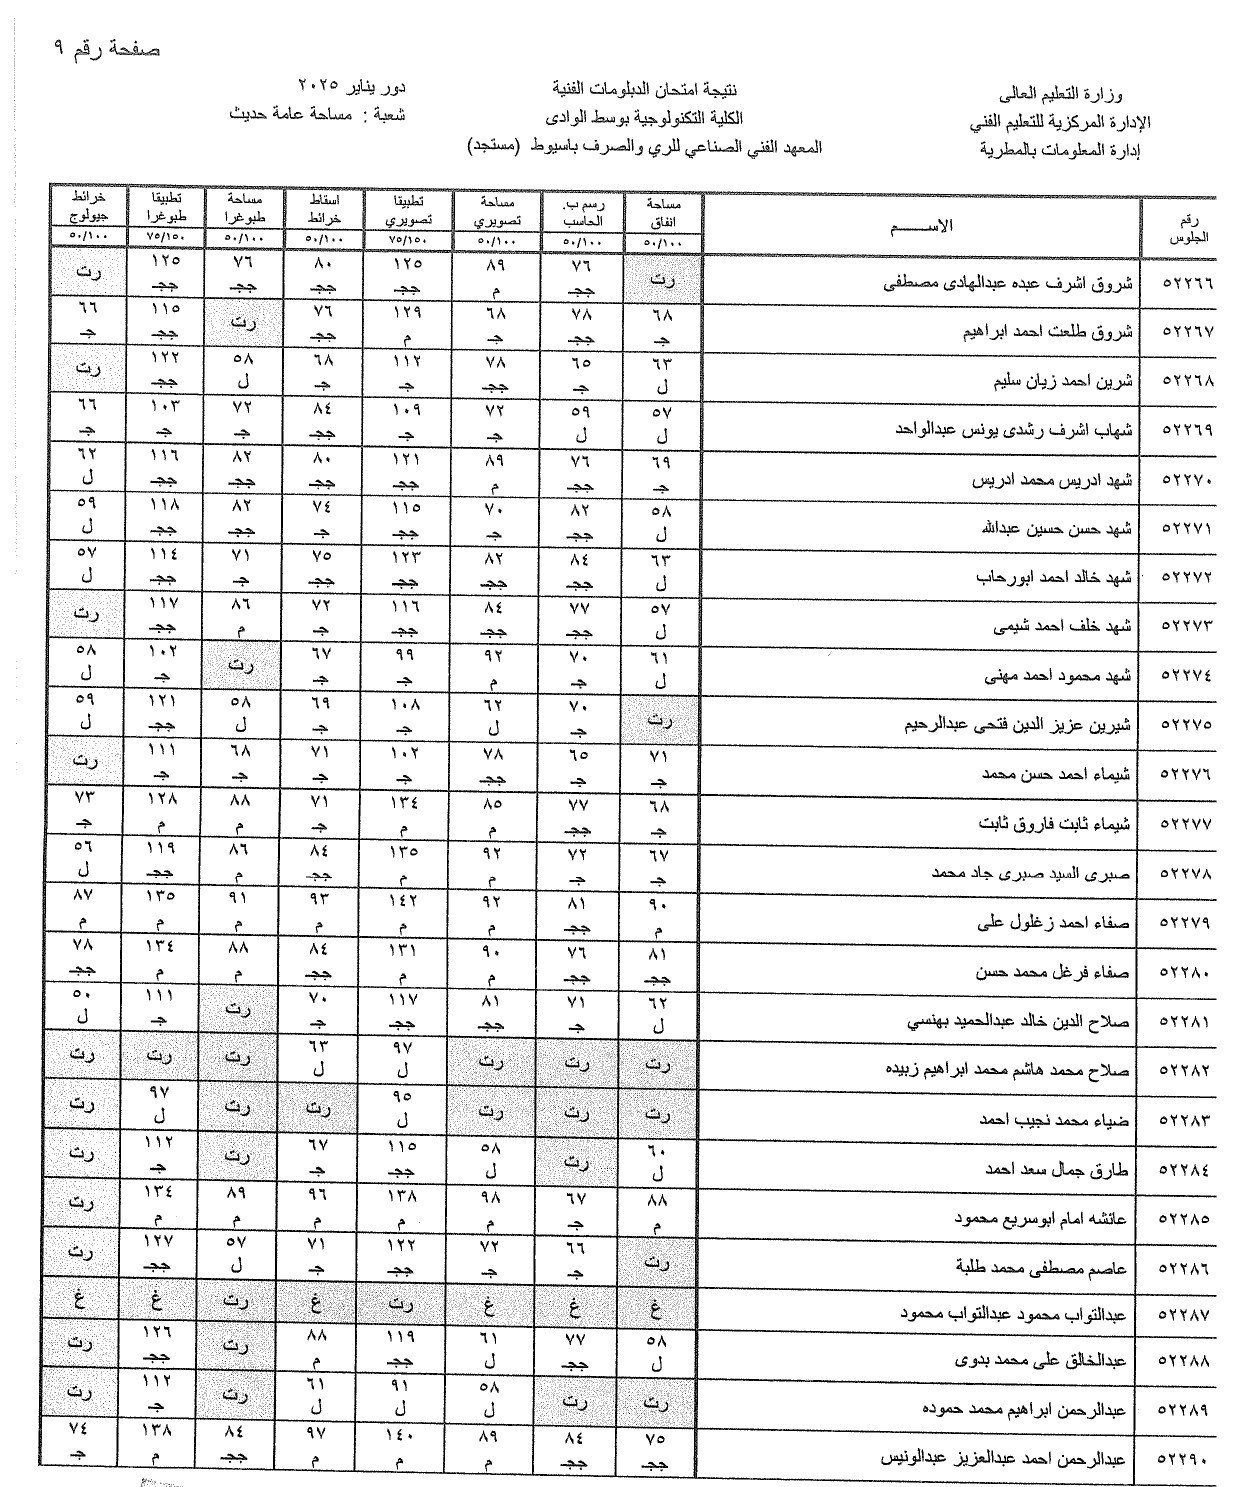 صفحة رقم ٩
وزارة التعليم العالى
الإدارة المركزية للتعليم الفني
إدارة المعلومات بالمطرية
نتيجة امتحان الدبلومات الفنية
الكلية التكنولوجية بوسط الوادى
المعهد الفني الصناعي للري والصرف باسيوط (مستجد)
دور يناير ٢٠٢٥
شعبة : مساحة عامة حديث
رقم الجلوس | الاســـــم | مساحة انفاق ٥٠/١٠٠ | رسم ب. الحاسب ٥٠/١٠٠ | مساحة تصويري ٥٠/١٠٠ | تطبيقا تصويري ٧٥/١٥٠ | اسقاط خرائط ٥٠/١٠٠ | مساحة طبوغرا ٥٠/١٠٠ | تطبيقا طبوغرا ٧٥/١٥٠ | خرائط جيولوج ٥٠/١٠٠
٥٢٢٦٦ | شروق اشرف عبده عبدالهادى مصطفى | رت | ٧٦ جج | ٨٩ م | ١٢٥ جج | ٨٠ جج | ٧٦ جج | ١٢٥ جج | رت
٥٢٢٦٧ | شروق طلعت احمد ابراهيم | ٦٨ ج | ٧٨ جج | ٦٨ ج | ١٢٩ م | ٧٦ جج | رت | ١١٥ جج | ٦٦ ج
٥٢٢٦٨ | شرين احمد زيان سليم | ٦٣ ل | ٦٥ ج | ٧٨ جج | ١١٢ ج | ٦٨ ج | ٥٨ ل | ١٢٢ جج | رت
٥٢٢٦٩ | شهاب اشرف رشدى يونس عبدالواحد | ٥٧ ل | ٥٩ ل | ٧٢ ج | ١٠٩ ج | ٨٤ جج | ٧٢ ج | ١٠٣ ج | ٦٦ ج
٥٢٢٧٠ | شهد ادريس محمد ادريس | ٦٩ ج | ٧٦ جج | ٨٩ م | ١٢١ جج | ٨٠ جج | ٨٢ جج | ١١٦ جج | ٦٢ ل
٥٢٢٧١ | شهد حسن حسين عبدالله | ٥٨ ل | ٨٢ جج | ٧٠ ج | ١١٥ جج | ٧٤ ج | ٨٢ جج | ١١٨ جج | ٥٩ ل
٥٢٢٧٢ | شهد خالد احمد ابورحاب | ٦٣ ل | ٨٤ جج | ٨٢ جج | ١٢٣ جج | ٧٥ جج | ٧١ ج | ١١٤ جج | ٥٧ ل
٥٢٢٧٣ | شهد خلف احمد شيمى | ٥٧ ل | ٧٧ جج | ٨٤ جج | ١١٦ جج | ٧٢ ج | ٨٦ م | ١١٧ جج | رت
٥٢٢٧٤ | شهد محمود احمد مهنى | ٦١ ل | ٧٠ ج | ٩٢ م | ٩٩ ج | ٦٧ ج | رت | ١٠٢ ج | ٥٨ ل
٥٢٢٧٥ | شيرين عزيز الدين فتحى عبدالرحيم | رت | ٧٠ ج | ٦٢ ل | ١٠٨ ج | ٦٩ ج | ٥٨ ل | ١٢١ جج | ٥٩ ل
٥٢٢٧٦ | شيماء احمد حسن محمد | ٧١ ج | ٦٥ ج | ٧٨ جج | ١٠٢ ج | ٧١ ج | ٦٨ ج | ١١١ ج | رت
٥٢٢٧٧ | شيماء ثابت فاروق ثابت | ٦٨ ج | ٧٧ جج | ٨٥ م | ١٣٤ م | ٧١ ج | ٨٨ م | ١٢٨ م | ٧٣ ج
٥٢٢٧٨ | صبرى السيد صبرى جاد محمد | ٦٧ ج | ٧٢ ج | ٩٢ م | ١٣٥ م | ٨٤ جج | ٨٦ م | ١١٩ جج | ٥٦ ل
٥٢٢٧٩ | صفاء احمد زغلول على | ٩٠ م | ٨١ جج | ٩٢ م | ١٤٢ م | ٩٣ م | ٩١ م | ١٣٥ م | ٨٧ م
٥٢٢٨٠ | صفاء فرغل محمد حسن | ٨١ جج | ٧٦ جج | ٩٠ م | ١٣١ م | ٨٤ جج | ٨٨ م | ١٣٤ م | ٧٨ جج
٥٢٢٨١ | صلاح الدين خالد عبدالحميد بهنسي | ٦٢ ل | ٧١ ج | ٨١ جج | ١١٧ جج | ٧٠ ج | رت | ١١١ ج | ٥٠ ل
٥٢٢٨٢ | صلاح محمد هاشم محمد ابراهيم زبيده | رت | رت | رت | ٩٧ ل | ٦٣ ل | رت | رت | رت
٥٢٢٨٣ | ضياء محمد نجيب احمد | رت | رت | رت | ٩٥ ل | رت | رت | ٩٧ ل | رت
٥٢٢٨٤ | طارق جمال سعد احمد | ٦٠ ل | رت | ٥٨ ل | ١١٥ جج | ٦٧ ج | رت | ١١٢ ج | رت
٥٢٢٨٥ | عائشه امام ابوسريع محمود | ٨٨ م | ٦٧ ج | ٩٨ م | ١٣٨ م | ٩٦ م | ٨٩ م | ١٣٤ م | رت
٥٢٢٨٦ | عاصم مصطفى محمد طلبة | رت | ٦٦ ج | ٧٢ ج | ١٢٢ جج | ٧١ ج | ٥٧ ل | ١٢٧ جج | رت
٥٢٢٨٧ | عبدالتواب محمود عبدالتواب محمود | غ | غ | غ | رت | غ | رت | غ | غ
٥٢٢٨٨ | عبدالخالق على محمد بدوى | ٥٨ ل | ٧٧ جج | ٦١ ل | ١١٩ جج | ٨٨ م | رت | ١٢٦ جج | رت
٥٢٢٨٩ | عبدالرحمن ابراهيم محمد حموده | رت | رت | ٥٨ ل | ٩١ ل | ٦١ ل | رت | ١١٢ ج | رت
٥٢٢٩٠ | عبدالرحمن احمد عبدالعزيز عبدالونيس | ٧٥ جج | ٨٤ جج | ٨٩ م | ١٤٠ م | ٩٧ م | ٨٤ جج | ١٣٨ م | ٧٤ ج